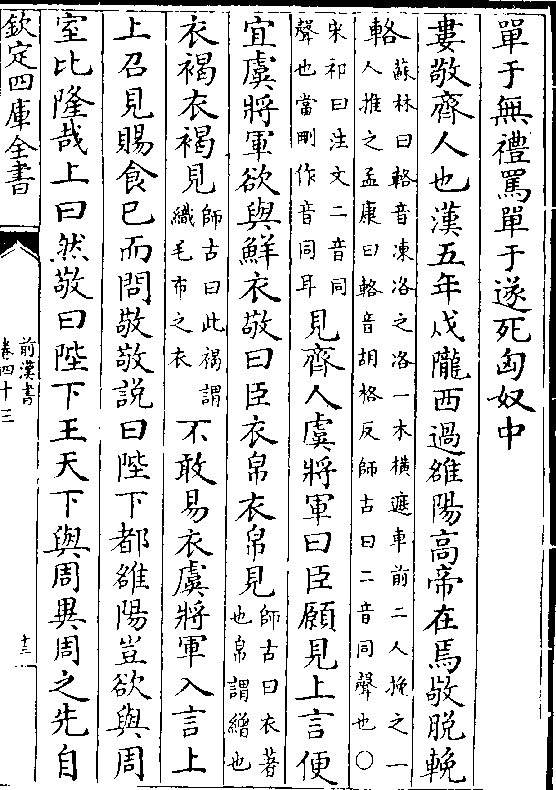 單于無禮罵單于遂死匈奴中
婁敬齊人也漢五年戍隴西過雒陽高帝在焉敬脫輓
輅蘇林曰輅音凍洛之洛一木橫遮車前二人挽之一
人推之孟康曰輅音胡格反師古曰二音同聲也○
宋祁曰注文二音同
聲也當刪作音同耳見齊人虞將軍曰臣願見上言便
宜虞將軍欲與鮮衣敬曰臣衣帛衣帛見師古曰衣著
也帛謂繒也
衣褐衣褐見師古曰此褐謂
織毛布之衣不敢易衣虞將軍入言上
上召見賜食已而問敬敬說曰陛下都雒陽豈欲與周
室比隆哉上曰然敬曰陛下王天下與周異周之先自
欽定四庫全書
前漢書
卷四十三
十三